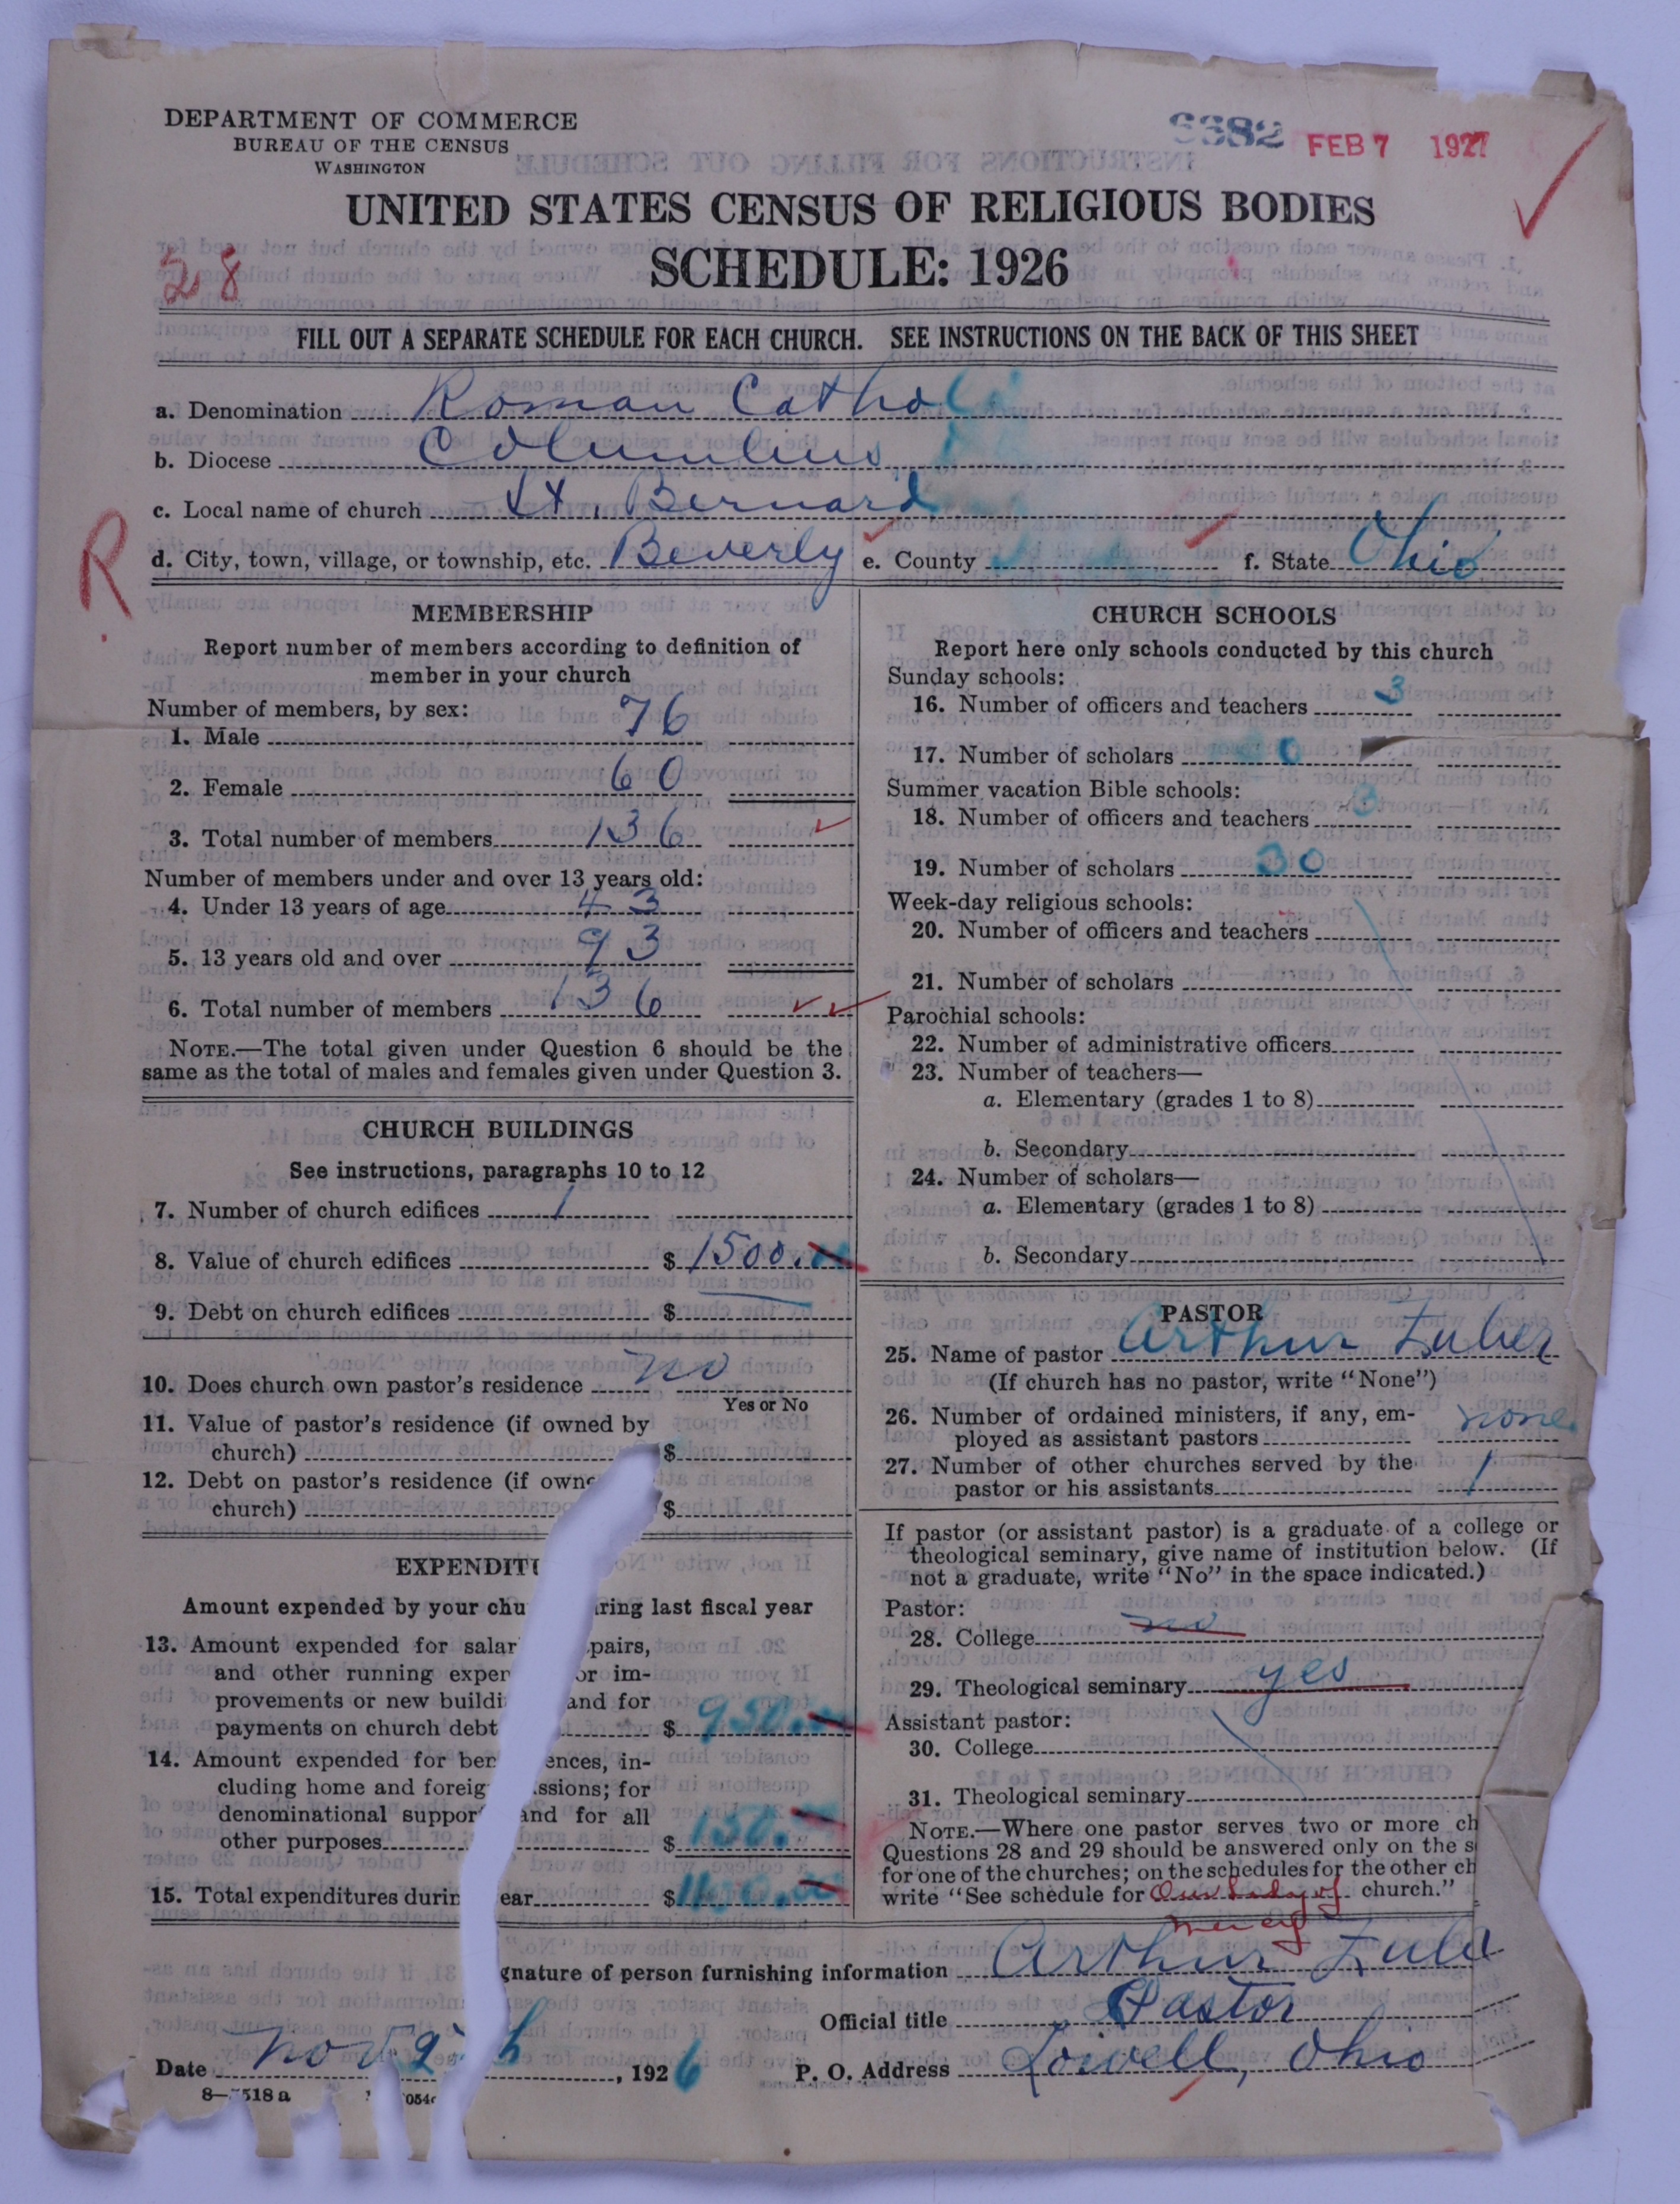 DEPARTMENT OF COMMERCE
BUREAU OF THE CENSUS
WASHINGTON
6682 FEB 7 1927
UNITED STATES CENSUS OF RELIGIOUS BODIES
SCHEDULE: 1926
28
FILL OUT A SEPARATE SCHEDULE FOR EACH CHURCH. SEE INSTRUCTIONS ON THE BACK OF THIS SHEET
a. Denomination Roman Cathol
b. Diocese Columbus
c. Local name of church St. Bernard
R
d. City, town, village, or township, etc. Beverly e. County f. State Ohio
MEMBERSHIP
Report number of members according to definition of
member in your church
Number of members, by sex:
1. Male 76
2. Female 60
3. Total number of members 136
Number of members under and over 13 years old:
4. Under 13 years of age 43
5. 13 years old and over 93
6. Total number of members 136
NOTE.—The total given under Question 6 should be the
same as the total of males and females given under Question 3.
CHURCH BUILDINGS
See instructions, paragraphs 10 to 12
7. Number of church edifices 1
8. Value of church edifices $1500.
9. Debt on church edifices $
10. Does church own pastor's residence no
Yes or No
11. Value of pastor's residence (if owned by
church) $
12. Debt on pastor's residence (if owne
church) $
EXPENDITU
Amount expended by your chu ring last fiscal year
13. Amount expended for salar pairs,
and other running expen or im-
provements or new buildi and for
payments on church debt $ 950.
14. Amount expended for ben ences, in-
cluding home and foreig ssions; for
denominational suppor and for all
other purposes $ 150.
15. Total expenditures durin ear $
CHURCH SCHOOLS
Report here only schools conducted by this church
Sunday schools:
16. Number of officers and teachers 3
17. Number of scholars
Summer vacation Bible schools:
18. Number of officers and teachers 3
19. Number of scholars 30
Week-day religious schools:
20. Number of officers and teachers
21. Number of scholars
Parochial schools:
22. Number of administrative officers
23. Number of teachers—
a. Elementary (grades 1 to 8)
b. Secondary
24. Number of scholars—
a. Elementary (grades 1 to 8)
b. Secondary
PASTOR
25. Name of pastor Arthur Zuber
(If church has no pastor, write "None")
26. Number of ordained ministers, if any, em-
ployed as assistant pastors none
27. Number of other churches served by the
pastor or his assistants 1
If pastor (or assistant pastor) is a graduate of a college or
theological seminary, give name of institution below. (If
not a graduate, write "No" in the space indicated.)
Pastor:
28. College no
29. Theological seminary yes
Assistant pastor:
30. College
31. Theological seminary
NOTE.—Where one pastor serves two or more ch
Questions 28 and 29 should be answered only on the s
for one of the churches; on the schedules for the other ch
write "See schedule for Our Lady of church."
mercy
gnature of person furnishing information Arthur Zube
Official title Pastor
Date Nov 9 h, 1926 P. O. Address Lowell, Ohio
8—518 a